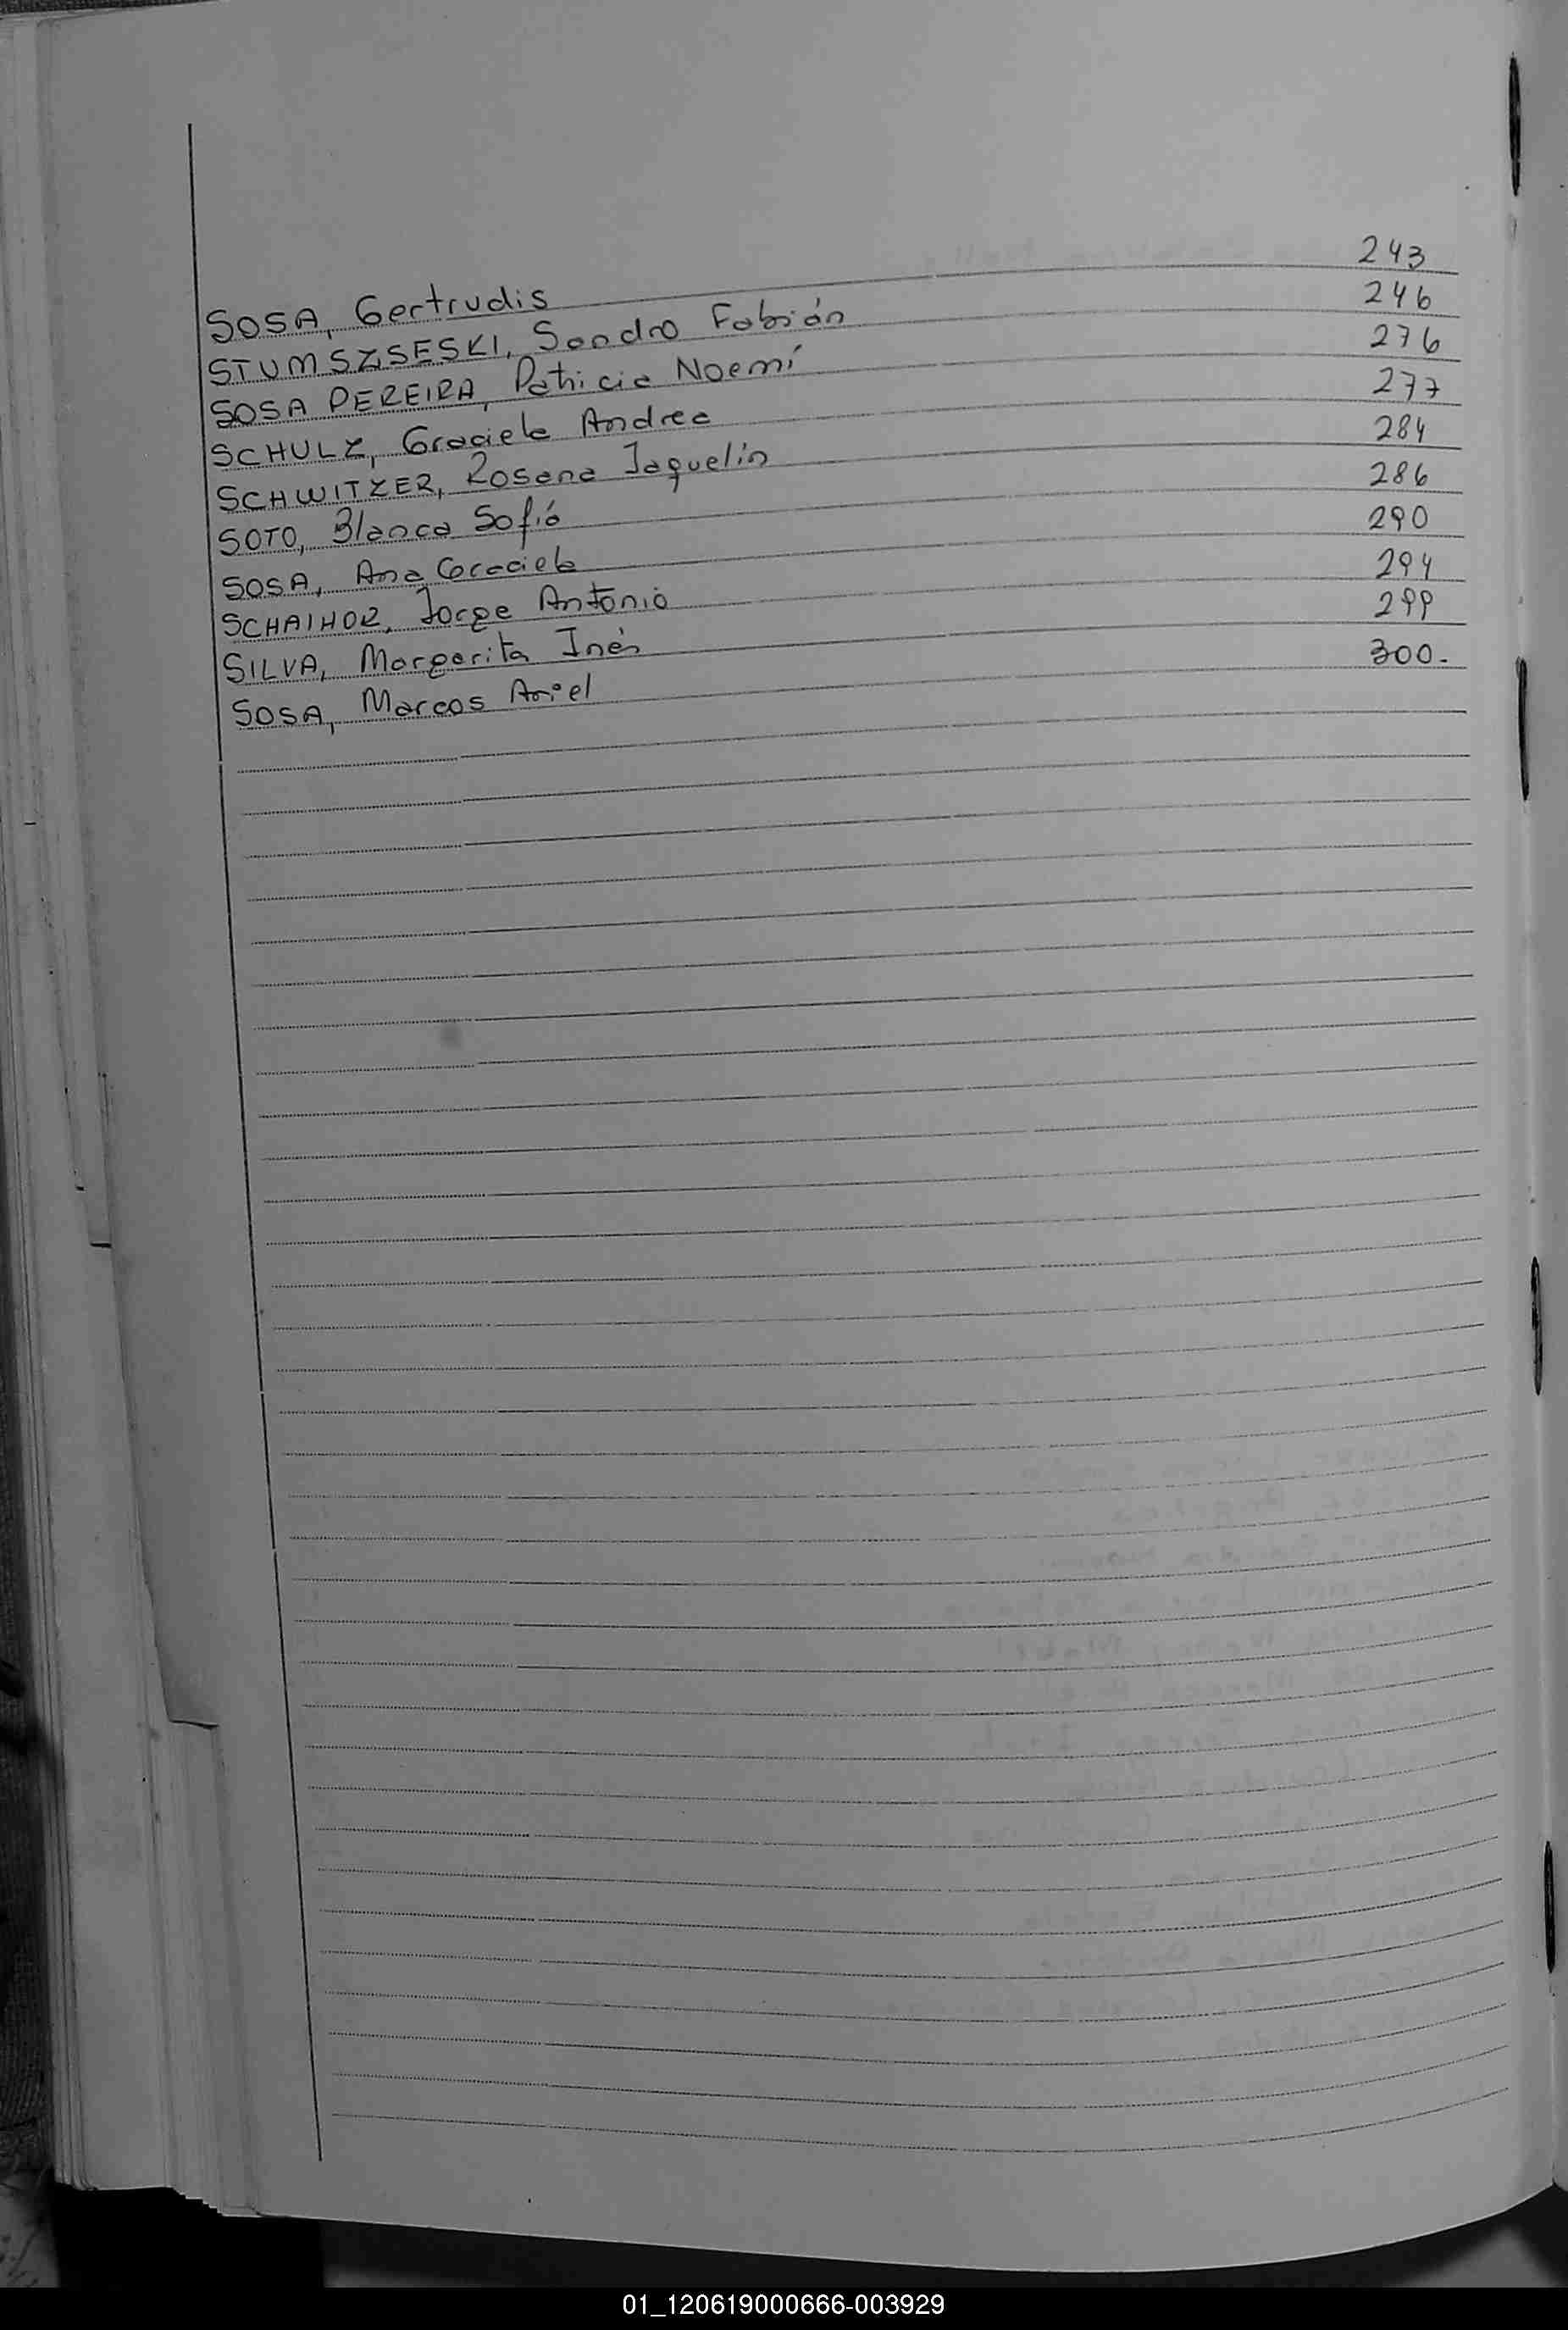 SOSA, Gertrudis 243
STUMSZSESKI, Sandro Fabián 246
SOSA PEREIRA, Patricia Noemí 276
SCHULZ, Graciela Andrea 277
SCHWITZER, Rosana Jaquelin 284
SOTO, Blanca Sofía 286
SOSA, Ana Graciela 290
SCHAIHOR, Jorge Antonio 294
SILVA, Margarita Inés 299
SOSA, Marcos Ariel 300.
01_120619000666-003929